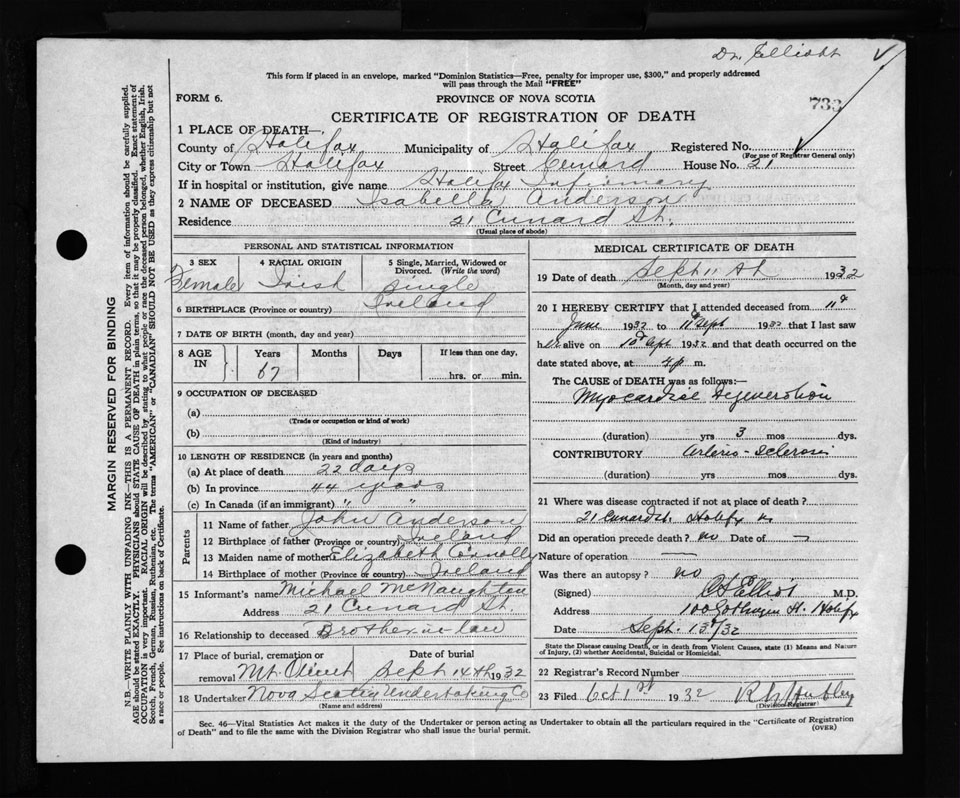 Dr. Elliott
This form if placed in an envelope, marked "Dominion Statistics—Free, penalty for improper use, $300," and properly addressed
will pass through the Mail "FREE"
FORM 6.
PROVINCE OF NOVA SCOTIA
733
CERTIFICATE OF REGISTRATION OF DEATH
1 PLACE OF DEATH—
County of Halifax Municipality of Halifax Registered No.
(For use of Registrar General only)
City or Town Halifax Street Cunard House No. 21
If in hospital or institution, give name Halifax Infirmary
2 NAME OF DECEASED Isabella Anderson
Residence 21 Cunard St.
(Usual place of abode)
PERSONAL AND STATISTICAL INFORMATION
3 SEX 4 RACIAL ORIGIN 5 Single, Married, Widowed or
Divorced. (Write the word)
Female Irish Single
6 BIRTHPLACE (Province or country) Ireland
7 DATE OF BIRTH (month, day and year)
8 AGE IN Years Months Days If less than one day,
67 hrs. or min.
9 OCCUPATION OF DECEASED
(a)
(Trade or occupation or kind of work)
(b)
(Kind of industry)
10 LENGTH OF RESIDENCE (in years and months)
(a) At place of death 22 days
(b) In province 44 years
(c) In Canada (if an immigrant) " "
Parents
11 Name of father John Anderson
12 Birthplace of father (Province or country) Ireland
13 Maiden name of mother Elizabeth Connolly
14 Birthplace of mother (Province or country) Ireland
15 Informant's name Michael McNaughten
Address 21 Cunard St.
16 Relationship to deceased Brother in law
17 Place of burial, cremation or removal Date of burial
Mt. Olivet Sept 14th 1932
18 Undertaker Nova Scotia Undertaking Co
(Name and address)
MEDICAL CERTIFICATE OF DEATH
19 Date of death Sept 11th 1932
(Month, day and year)
20 I HEREBY CERTIFY that I attended deceased from 11th
June 1932 to 11th Sept 1932 that I last saw
her alive on 10 Sept 1932 and that death occurred on the
date stated above, at 4 p m.
The CAUSE of DEATH was as follows:—
Myocardial Degeneration
(duration) yrs 3 mos dys.
CONTRIBUTORY Arterio-Sclerosis
(duration) yrs mos dys.
21 Where was disease contracted if not at place of death?
21 Cunard St. Halifx
Did an operation precede death? no Date of —
Nature of operation —
Was there an autopsy? no
(Signed) Elliot M.D.
Address 100 Gottingen St. Halifx
Date Sept. 13th/32
State the Disease causing Death, or in death from Violent Causes, state (1) Means and Nature
of Injury, (2) whether Accidental, Suicidal or Homicidal.
22 Registrar's Record Number
23 Filed Oct 1st 1932
(Division Registrar)
Sec. 46—Vital Statistics Act makes it the duty of the Undertaker or person acting as Undertaker to obtain all the particulars required in the "Certificate of Registration
of Death" and to file the same with the Division Registrar who shall issue the burial permit.
(OVER)
MARGIN RESERVED FOR BINDING
N.B.—WRITE PLAINLY WITH UNFADING INK—THIS IS A PERMANENT RECORD. Every item of information should be carefully supplied.
AGE should be stated EXACTLY. PHYSICIANS should STATE CAUSE OF DEATH in plain terms, so that it may be properly classified. Exact statement of
OCCUPATION is very important. RACIAL ORIGIN will be described by stating to what people or race the deceased person belonged, whether English, Irish,
Scotch, French, German, Russian, Ruthenian, etc. The terms "AMERICAN" or "CANADIAN" SHOULD NOT BE USED as they express citizenship but not
a race or people. See instructions on back of Certificate.